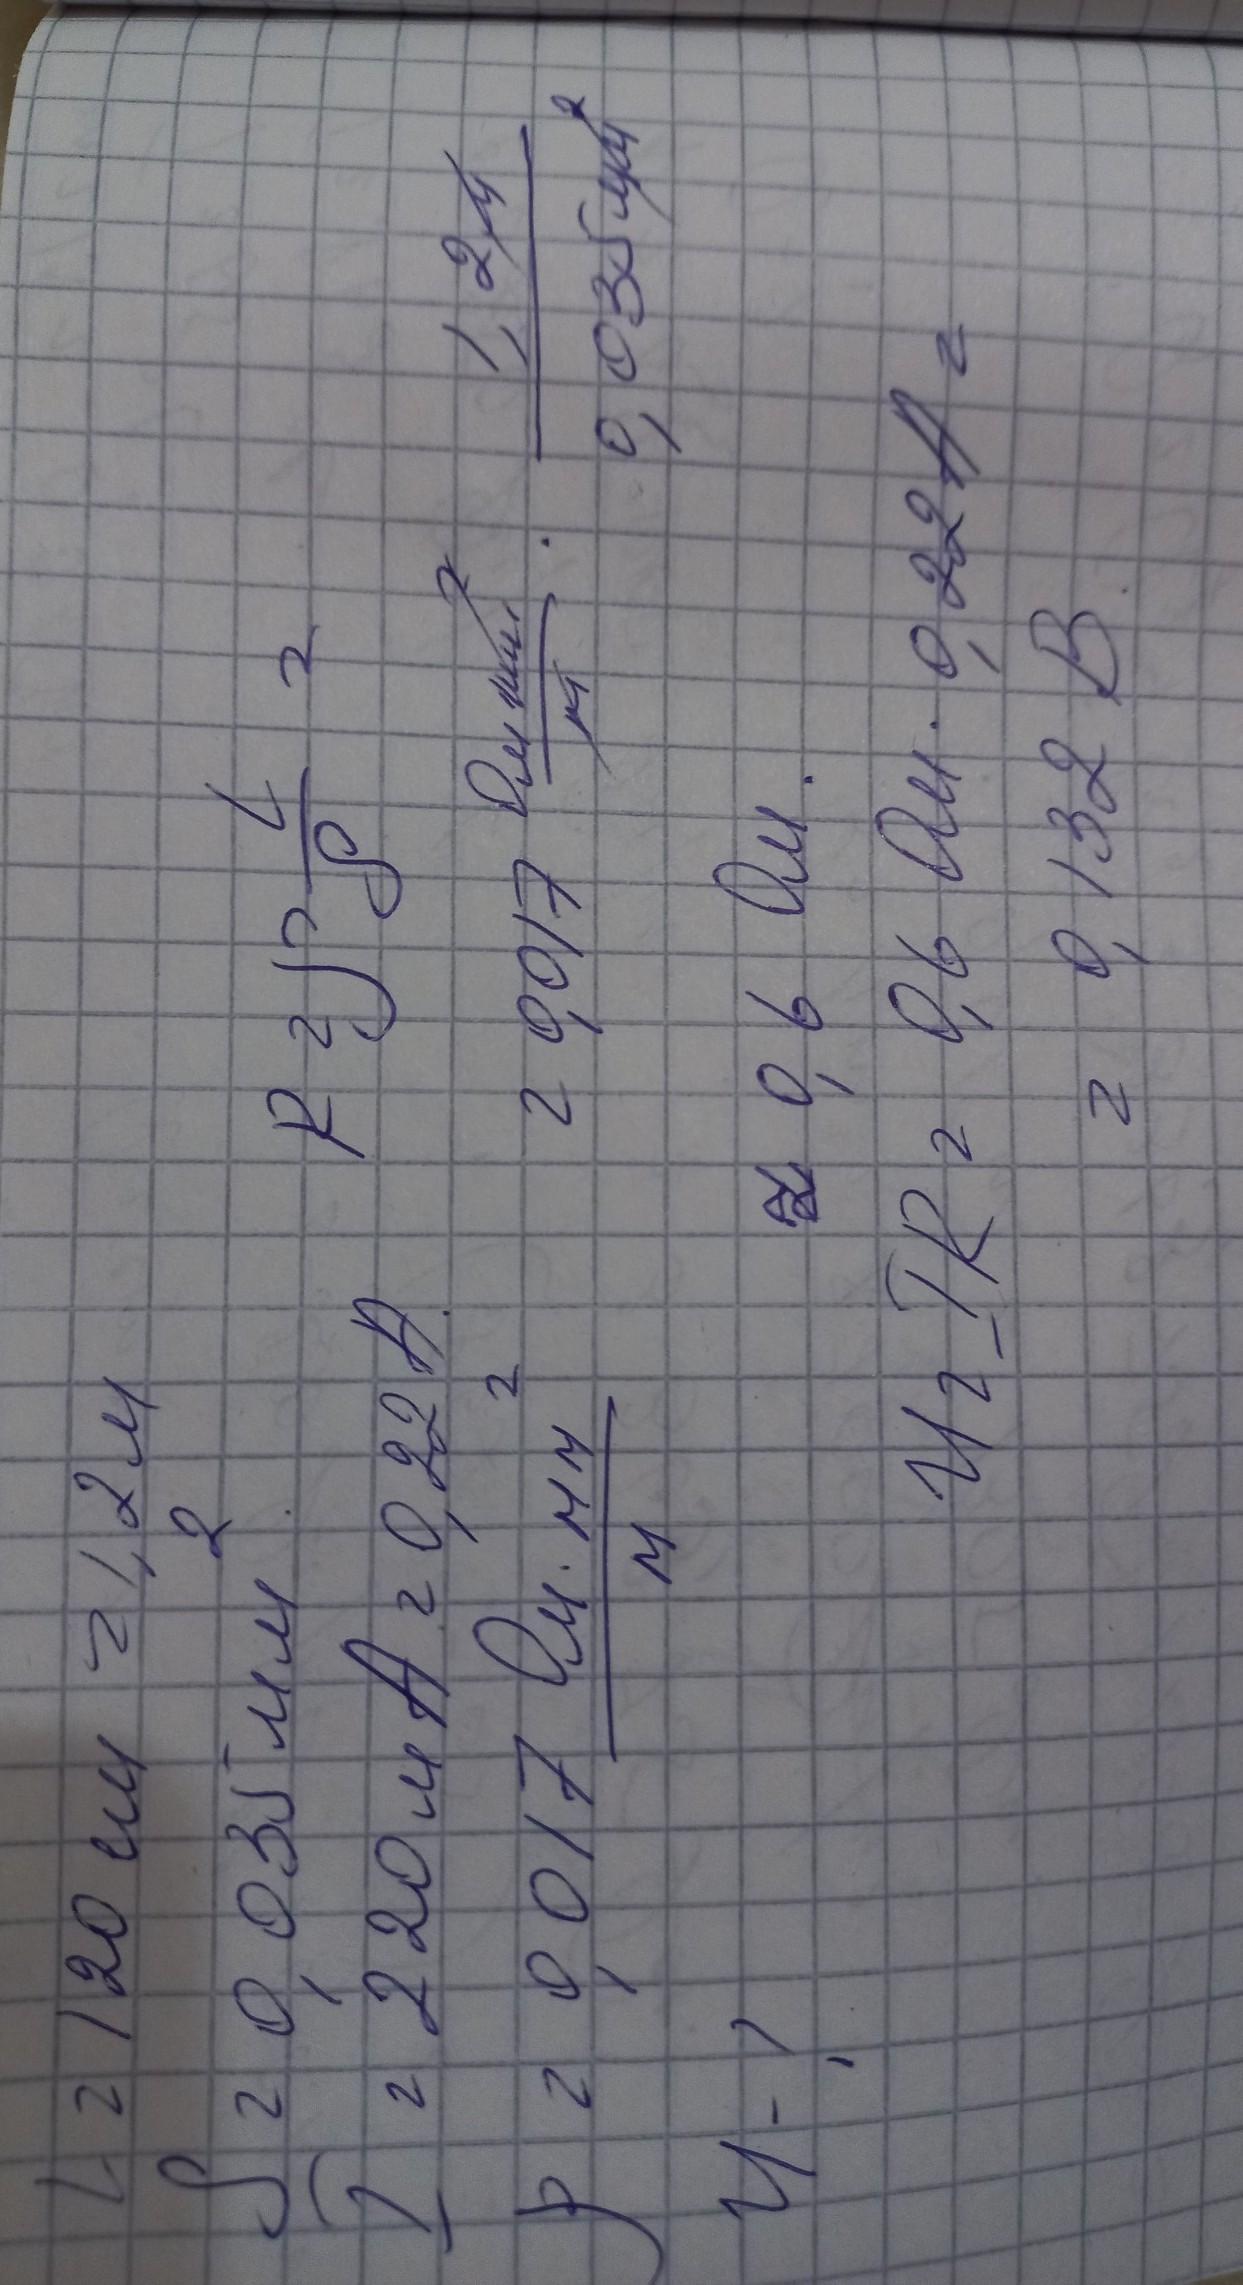 L = 120 см = 1,2 м
S = 0,035 мм²
I = 220 мА = 0,22 А.
ρ = 0,017 Ом·мм²/м
U - ?
R = ρ L/S =
= 0,017 Ом·мм²/м · 1,2 м/0,035 мм²
≈ 0,6 Ом.
U = IR = 0,6 Ом · 0,22 А =
= 0,132 В.